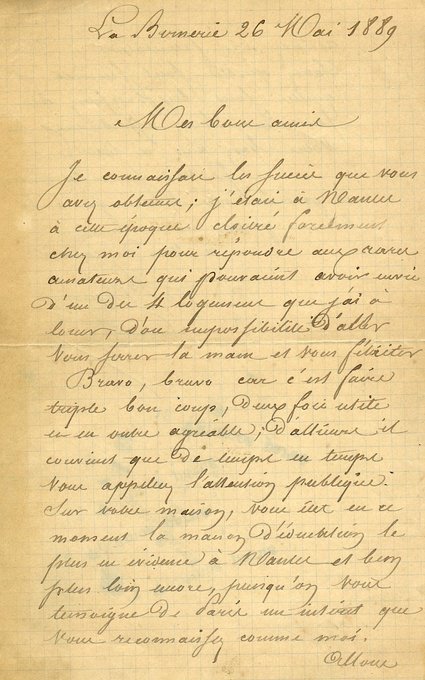 La Bimerie 26 Mai 1889
Mes bons amis
Je connaissais les succès que vous
avez obtenus; j'étais à Nantes
à cette époque cloitré forcément
chez moi pour répondre aux rares
amateurs qui pouvaient avoir envie
d'un des 4 logements que j'ai à
louer, d'où impossibilité d'aller
vous serrer la main et vous féliciter
Bravo, bravo car c'est faire
triple bon coup, deux fois utile
et en outre agréable; d'ailleurs il
convient que de temps en temps
vous appeliez l'attention publique.
Sur votre maison, vous êtes en ce
moment la maison d'éducation le
plus en évidence à Nantes et bien
plus loin encore, puisqu'on vous
témoigne de Paris un intérêt que
vous reconnaissez comme moi.